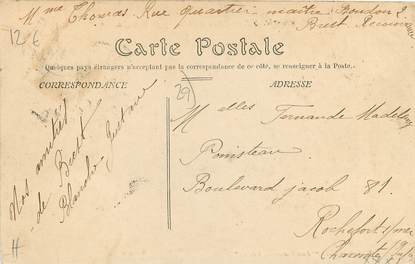 Mme Thomas Rue Quartier maître Bondon 2
Brest
12-6
Carte Postale
Quelques pays étrangers n'acceptant pas la correspondance de ce côté, se renseigner à la Poste.
CORRESPONDANCE
ADRESSE
29
Nos amitiés
de Brest
Blanche Gustave
Melles Fernande Madeleine
Ponisteau
Boulevard jacob 81
Rochefort s/mer
Charente
H